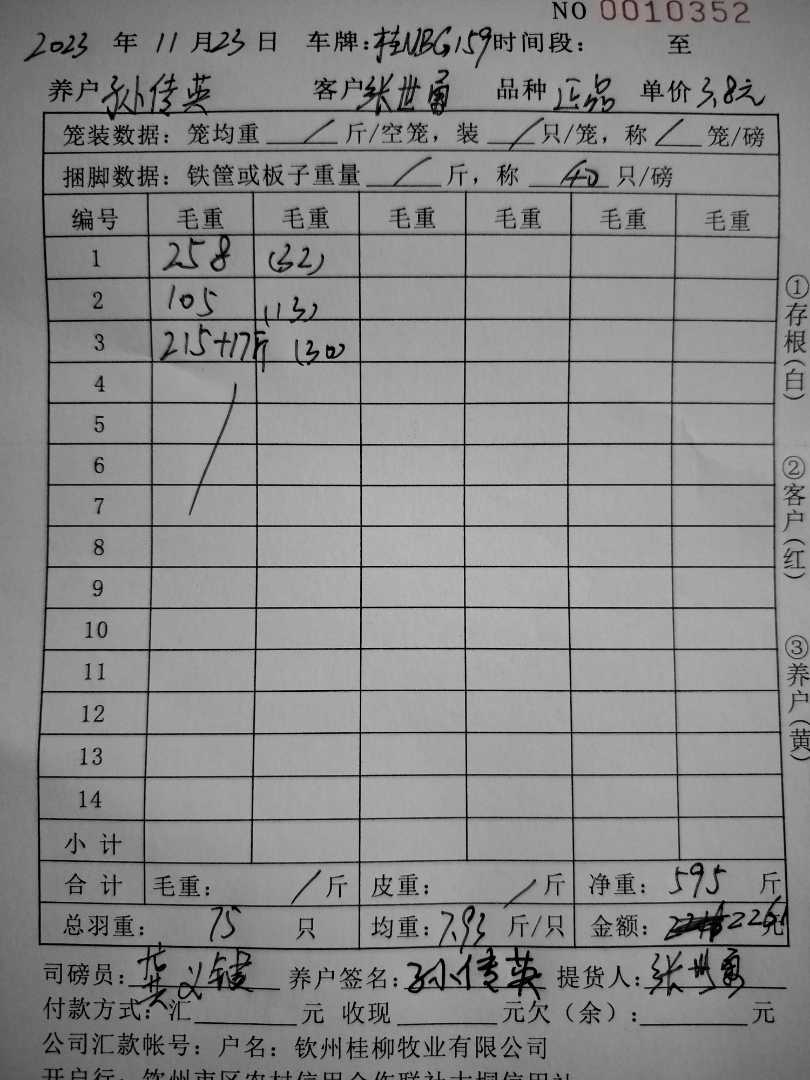 NO 0010352
2023 年 11 月 23 日 车牌:桂NBG159 时间段: 至
养户 孙倩英 客户 张世勇 品种 正品 单价 3.8元
笼装数据: 笼均重 / 斤/空笼, 装 / 只/笼, 称 / 笼/磅
捆脚数据: 铁筐或板子重量 / 斤, 称 40 只/磅
编号 毛重 毛重 毛重 毛重 毛重 毛重
1 258 (32)
2 105 (13)
3 215+17斤 (30)
4
5
6
7
8
9
10
11
12
13
14
小 计
合 计 毛重: / 斤 皮重: / 斤 净重: 595 斤
总羽重: 75 只 均重: 7.93 斤/只 金额: 2261 元
司磅员: 养户签名: 孙倩英 提货人: 张世勇
付款方式: 汇 元 收现 元欠(余): 元
公司汇款帐号: 户名: 钦州桂柳牧业有限公司
开户行: 钦州市区农村信用合作联社大垌信用社
①存根(白)
②客户(红)
③养户(黄)